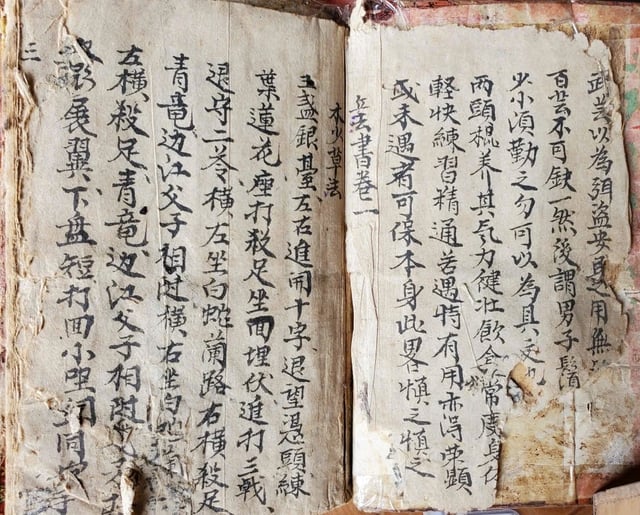 武芸以為弭盗安民之用無
百芸不可缺一然後謂男子鬚
少小須勤之勿可以為具文也
両頭棍养其気力健壮飲食常慶身
軽快練習精通若遇時有用亦得栄顕
或未遇者可保本身此畧慎之慎之
兵書卷一
本少草法
玉盞銀臺左右進開十字退望憑頭練
葉蓮花座打殺足坐面埋伏進打三戰
退守二苓横左坐白蛇蘭路右横殺足
青竜边江父子相隨横右坐白蛇蘭
左横殺足青竜边江父子相隨
展翼下盘短打回小
三